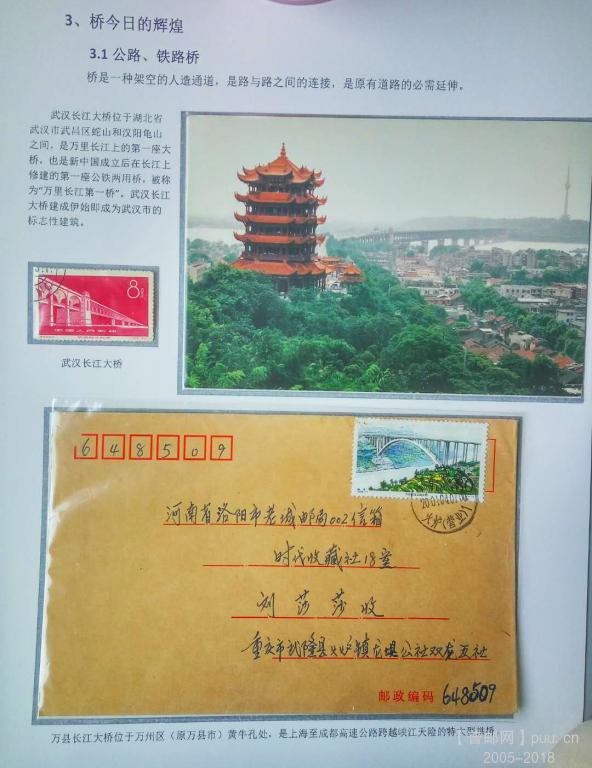 3、桥今日的辉煌
3.1 公路、铁路桥
桥是一种架空的人造通道，是路与路之间的连接，是原有道路的必需延伸。
武汉长江大桥位于湖北省
武汉市武昌区蛇山和汉阳龟山
之间，是万里长江上的第一座大
桥，也是新中国成立后在长江上
修建的第一座公铁两用桥，被称
为“万里长江第一桥”。武汉长江
大桥建成伊始即成为武汉市的
标志性建筑。
8
中国人民邮政
武汉长江大桥
648509
河南省洛阳市老城邮局002信箱
时代收藏社18室
刘莎莎收
重庆市武隆县火炉镇
公社双龙五社
邮政编码 648509
万县长江大桥位于万州区（原万县市）黄牛孔处，是上海至成都高速公路跨越峡江天险的特大型拱桥
【管邮网】puu.cn
2005-2018